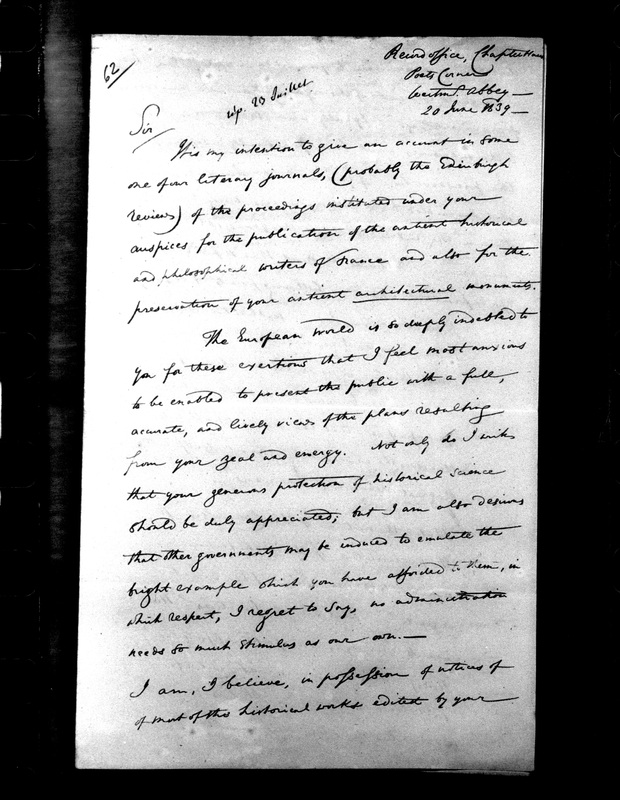 62
Record office, Chapter House
Poets Corner
Westmr. Abbey —
20 June 1839 —
rép. 23 Juillet
Sir
It is my intention to give an account in some
one of our literary journals, (probably the Edinburgh
review) of the proceedings instituted under your
auspices for the publication of the antient historical
and philosophical writers of France and also for the
preservation of your antient architectural monuments.
The European world is so deeply indebted to
you for these exertions that I feel most anxious
to be enabled to present the public with a full,
accurate, and lively view of the plans resulting
from your zeal and energy. Not only do I wish
that your generous protection of historical science
should be duly appreciated; but I am also desirous
that other governments may be induced to emulate the
bright example which you have afforded to them, in
which respect, I regret to say, no administration
needs so much stimulus as our own. —
I am, I believe, in possession of notices of
of most of the historical works edited by your